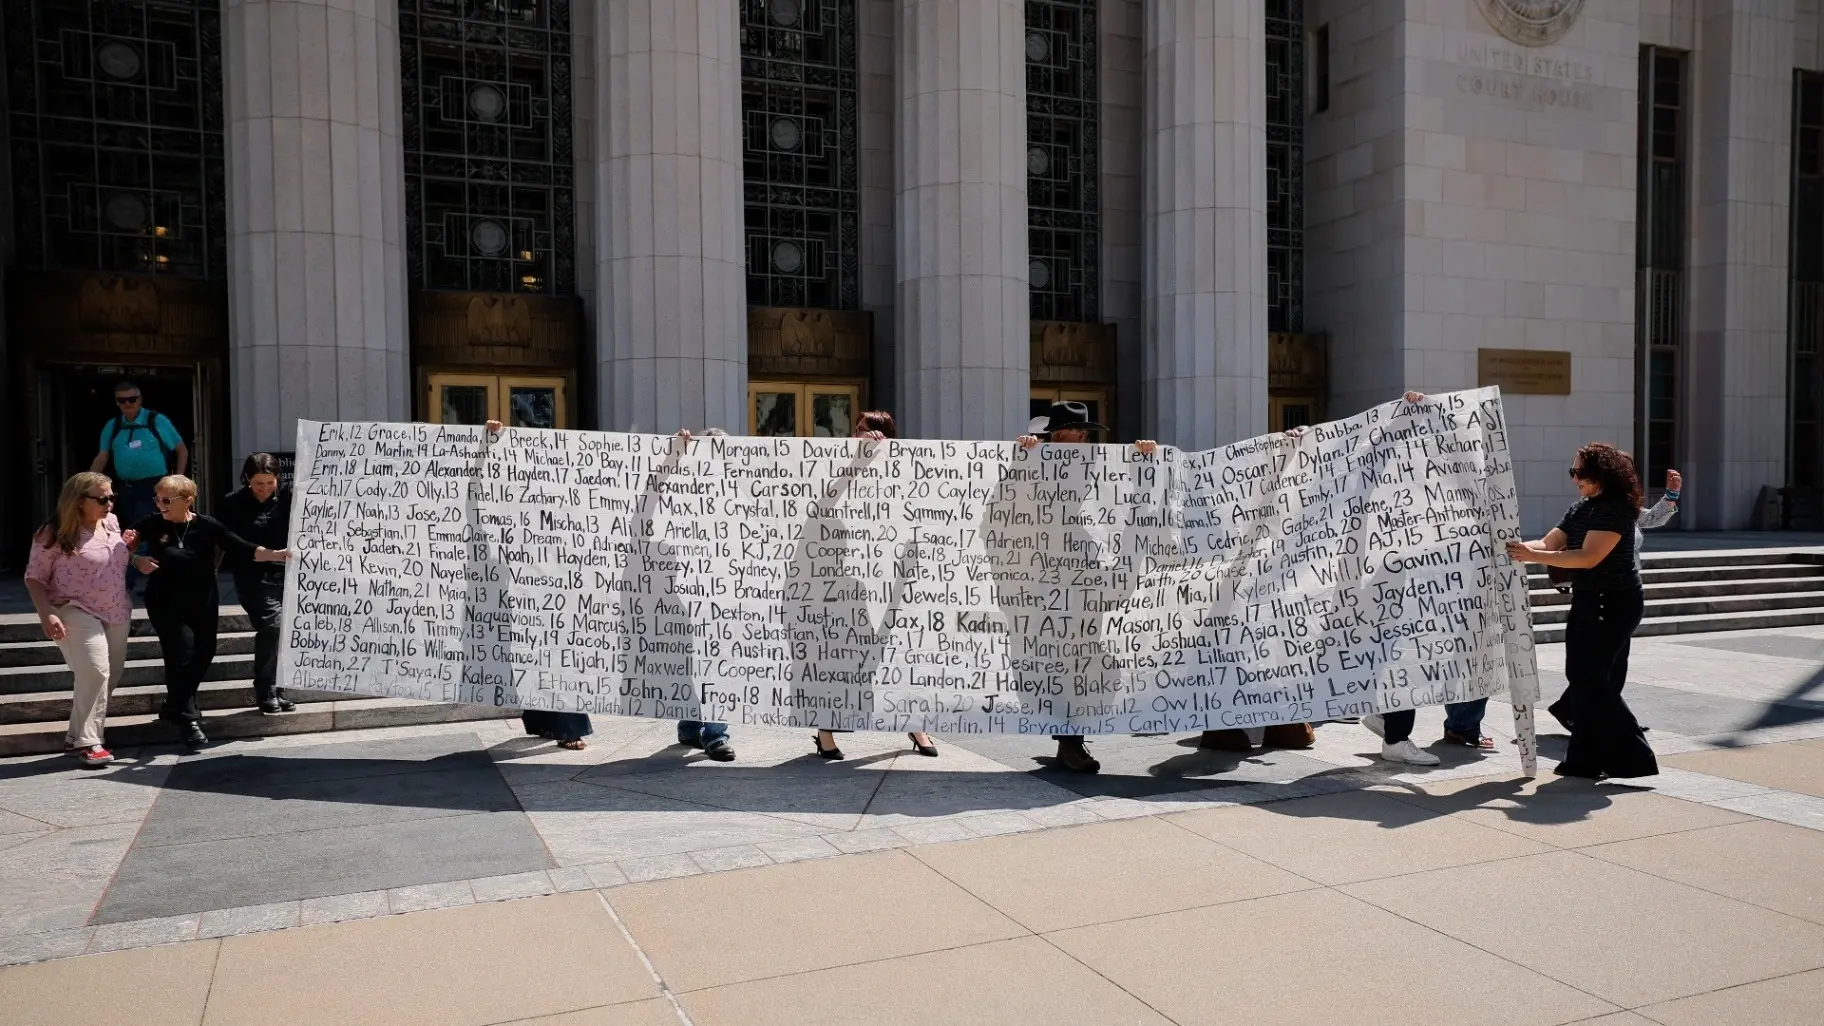 UNITED STATES
COURT HOUSE
Erik,12 Grace,15 Amanda,15 Breck,14 Sophie,13 CJ,17 Morgan,15 David,16 Bryan,15 Jack,15 Gage,14 Lexi,15 Christopher,17 Bubba,13 Zachary,15
Danny,20 Martin,19 La-Ashanti,14 Michael,20 Bay,11 Landis,12 Fernando,17 Lauren,18 Devin,19 Daniel,16 Tyler,19 24 Oscar,17 Dylan,17 Chantel,18
Erin,18 Liam,20 Alexander,18 Hayden,17 Jaedon,17 Alexander,14 Carson,16 Hector,20 Cayley,15 Jaylen,21 Luca, 17 Cadence,14 Englyn,14 Richar
Zach,17 Cody,20 Olly,13 Fidel,16 Zachary,18 Emmy,17 Max,18 Crystal,18 Quantrell,19 Sammy,16 Taylen,15 Louis,26 Juan,16 15 Arriani,9 Emily,17 Mia,14 Avianna,
Kaylie,17 Noah,13 Jose,20 Tomas,16 Mischa,13 Ali,18 Ariella,13 Deja,12 Damien,20 Isaac,17 Adrien,19 Henry,18 Michael,15 Cedric,20 Gabe,21 Jolene,23 Manny,
Ian,21 Sebastian,17 EmmaClaire,16 Dream,10 Adrien,17 Carmen,16 KJ,20 Cooper,16 Cole,18 Jayson,21 Alexander,24 Daniel,16 19 Jacob,20 Master-Anthony,
Carter,16 Jaden,21 Finale,18 Noah,11 Hayden,13 Breezy,12 Sydney,15 Londen,16 Nate,15 Veronica,23 Zoe,14 Faith,20 Chase,16 Austin,20 AJ,15 Isaac
Kyle,29 Kevin,20 Nayelie,16 Vanessa,18 Dylan,19 Josiah,15 Braden,22 Zaiden,11 Jewels,15 Hunter,21 Tahrique,11 Mia,11 Kylen,19 Will,16 Gavin,17
Royce,14 Nathan,21 Maia,13 Kevin,20 Mars,16 Ava,17 Dexton,14 Justin,18 Jax,18 Kadin,17 AJ,16 Mason,16 James,17 Hunter,15 Jayden,19
Kevanna,20 Jayden,13 Naquavious,16 Marcus,15 Lamont,16 Sebastian,16 Amber,17 Bindy,14 Maricarmen,16 Joshua,17 Asia,18 Jack,20 Marina,
Caleb,18 Allison,16 Timmy,13 Emily,19 Jacob,13 Damone,18 Austin,13 Harry,17 Gracie,15 Desiree,17 Charles,22 Lillian,16 Diego,16 Jessica,14
Bobby,13 Saniah,16 William,15 Chance,19 Elijah,15 Maxwell,17 Cooper,16 Alexander,20 Landon,21 Haley,15 Blake,15 Owen,17 Donevan,16 Evy,16 Tyson,17
Jordan,27 T'Saya,15 Kalea,17 Ethan,15 John,20 Frog,18 Nathaniel,19 Sarah,20 Jesse,19 London,12 Owl,16 Amari,14 Levi,13 Will,14
Albert,21 Dayton,15 Eli,16 Brayden,15 Delilah,12 Daniel,12 Braxton,12 Natalie,17 Merlin,14 Bryndyn,15 Carly,21 Cearra,25 Evan,16 Caleb,14